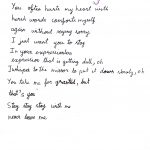 You often hurts my heart with
harsh words comforts myself
again without saying sorry
I just want you to stay
In your expressionless
expression that is getting dull, oh
Inkspar to the mirror to put it down slowly, oh
You take me for granted, but
that's you
Stay stay stay with me
never leave me